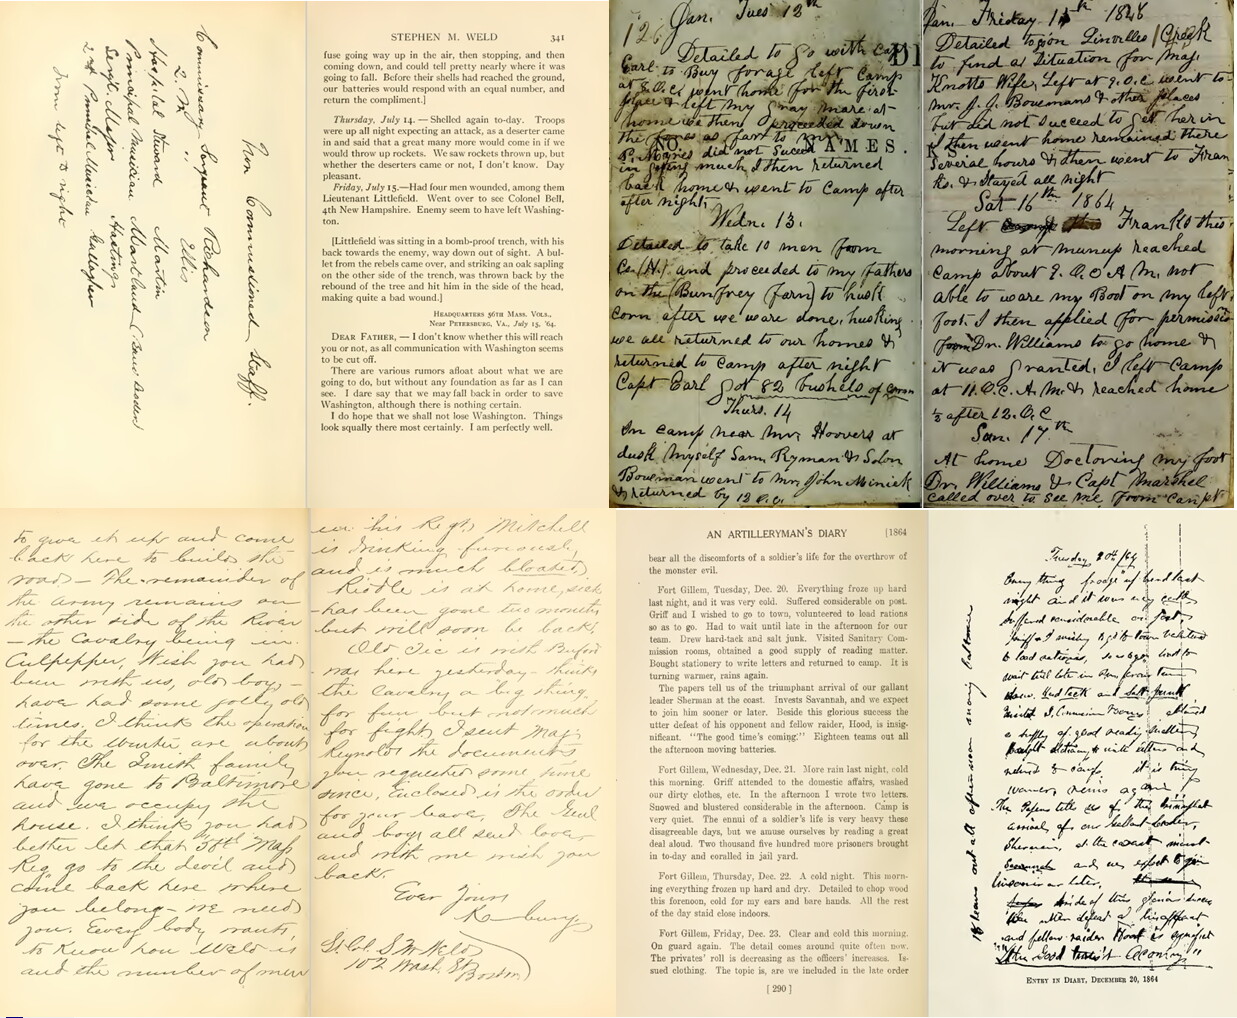 Non Commissioned Staff.
Commissary Sergeant Richardson
2. M. " Ellis
Hospital Steward Martin
Principal Musician Maitland (Band Leader)
Sergt. Major Hastings
2nd Principal Musician Gallagher
from left to right
STEPHEN M. WELD 341
fuse going way up in the air, then stopping, and then
coming down, and could tell pretty nearly where it was
going to fall. Before their shells had reached the ground,
our batteries would respond with an equal number, and
return the compliment.]
Thursday, July 14. — Shelled again to-day. Troops
were up all night expecting an attack, as a deserter came
in and said that a great many more would come in if we
would throw up rockets. We saw rockets thrown up, but
whether the deserters came or not, I don't know. Day
pleasant.
Friday, July 15.—Had four men wounded, among them
Lieutenant Littlefield. Went over to see Colonel Bell,
4th New Hampshire. Enemy seem to have left Washing-
ton.
[Littlefield was sitting in a bomb-proof trench, with his
back towards the enemy, way down out of sight. A bul-
let from the rebels came over, and striking an oak sapling
on the other side of the trench, was thrown back by the
rebound of the tree and hit him in the side of the head,
making quite a bad wound.]
HEADQUARTERS 56TH MASS. VOLS.,
Near PETERSBURG, VA., July 15, '64.
DEAR FATHER, — I don't know whether this will reach
you or not, as all communication with Washington seems
to be cut off.
There are various rumors afloat about what we are
going to do, but without any foundation as far as I can
see. I dare say that we may fall back in order to save
Washington, although there is nothing certain.
I do hope that we shall not lose Washington. Things
look squally there most certainly. I am perfectly well.
Jan. Tues 12th
126
Detailed to go with Cap
Earl to Buy forage left Camp
at 8.O.C. went home for the first
place & left my gray mare at
home we then proceeded down
the as far to
NO. NAMES.
P. did not Suceed
in much I then returned
back home & went to Camp after
after night
Wedn. 13.
Detailed to take 10 men from
Co. (H.) and proceeded to my fathers
on the (Bumfrey farm) to husk
corn after we were done, husking
we all returned to our homes &
returned to camp after night
Capt Earl got 82 bushels of corn
Thurs. 14
In camp near Mr. Hoovers at
dusk myself Sam. Ryman & Solon
Bowman went to Mr. John Minick
& returned by 12 O.C.
Jan. Friday 15th
Detailed to go on Linvilles Creek
to find a Situation for Maj.
Knotts Wife, Left at 9.O.C went to
Mr. J. J. Bowmans & other places
but did not Succeed to get her in
I then went home remained there
Several hours & then went to Fran
Ks. & Stayed all night
Sat 16th 1864
Left Frank(s) this
morning at sunup reached
Camp about 9. O.C. A M. not
able to ware my Boot on my left
foot I then applied for permissio
Dr. Williams to go home &
it was granted, I left Camp
at 11.O.C. A.M. & reached home
½ after 12. O.C
Sun. 17th
At home Doctoring my foot
Dr. Williams & Capt Marshel
called over to see me from Camp
to give it up and come
back here to build the
road — The remainder of
the Army remains on
the other side of the River
— the Cavalry being in
Culpepper, Wish you had
been with us, old boy —
have had some jolly old
times. I think the operations
for the Winter are about
over. The Smith family
have gone to Baltimore
and we occupy the
house. I think you had
better let that 56th Mass
Reg. go to the devil and
come back here where
you belong — we need
you. Every body wants
to know how Weld is
and the number of men
in his Regt. Mitchell
is drinking furiously,
and is much bloated,
Riddle is at home, sick
has been gone two months
but will soon be back.
Old Tic is with Buford
was here yesterday — thinks
the cavalry a big thing
for fun but not much
for fight. I sent Maj
Reynolds the documents
you requested some time
since, Enclosed is the order
for your leave, The Genl
and boys all send love
and with me wish you
back.
Ever Yours
Lt Col. S M Weld
102 Wash. St
Boston
AN ARTILLERYMAN'S DIARY [1864
bear all the discomforts of a soldier's life for the overthrow of
the monster evil.
Fort Gillem, Tuesday, Dec. 20. Everything froze up hard
last night, and it was very cold. Suffered considerable on post.
Griff and I wished to go to town, volunteered to load rations
so as to go. Had to wait until late in the afternoon for our
team. Drew hard-tack and salt junk. Visited Sanitary Com-
mission rooms, obtained a good supply of reading matter.
Bought stationery to write letters and returned to camp. It is
turning warmer, rains again.
The papers tell us of the triumphant arrival of our gallant
leader Sherman at the coast. Invests Savannah, and we expect
to join him sooner or later. Beside this glorious success the
utter defeat of his opponent and fellow raider, Hood, is insig-
nificant. "The good time's coming." Eighteen teams out all
the afternoon moving batteries.
Fort Gillem, Wednesday, Dec. 21. More rain last night, cold
this morning. Griff attended to the domestic affairs, washed
our dirty clothes, etc. In the afternoon I wrote two letters.
Snowed and blustered considerable in the afternoon. Camp is
very quiet. The ennui of a soldier's life is very heavy these
disagreeable days, but we amuse ourselves by reading a great
deal aloud. Two thousand five hundred more prisoners brought
in to-day and coralled in jail yard.
Fort Gillem, Thursday, Dec. 22. A cold night. This morn-
ing everything frozen up hard and dry. Detailed to chop wood
this forenoon, cold for my ears and bare hands. All the rest
of the day staid close indoors.
Fort Gillem, Friday, Dec. 23. Clear and cold this morning.
On guard again. The detail comes around quite often now.
The privates' roll is decreasing as the officers' increases. Is-
sued clothing. The topic is, are we included in the late order
[290]
Tuesday 20th /64
Every thing froze up hard last
night and it was very cold
Suffered considerable on post,
Griff & I wishing to go to town volunteered
to load rations, so as to go had to
wait till late in afternoon team
drew Hard tack and salt junk
Visited S. Commission Rooms, obtained
a supply of good reading matter
Bought stationery to write letters and
returned to camp. it is turning
warmer, rains again
The Papers tell us of the triumphant
arrival of our gallant leader,
Sherman, at the coast invests
Savannah and we expect to join
him sooner or later,
beside of this glorious success
the utter defeat of his opponent
and fellow raider Hood is insignificant
"The Good time's Coming"
18 teams out all afternoon moving batteries
ENTRY IN DIARY, DECEMBER 20, 1864